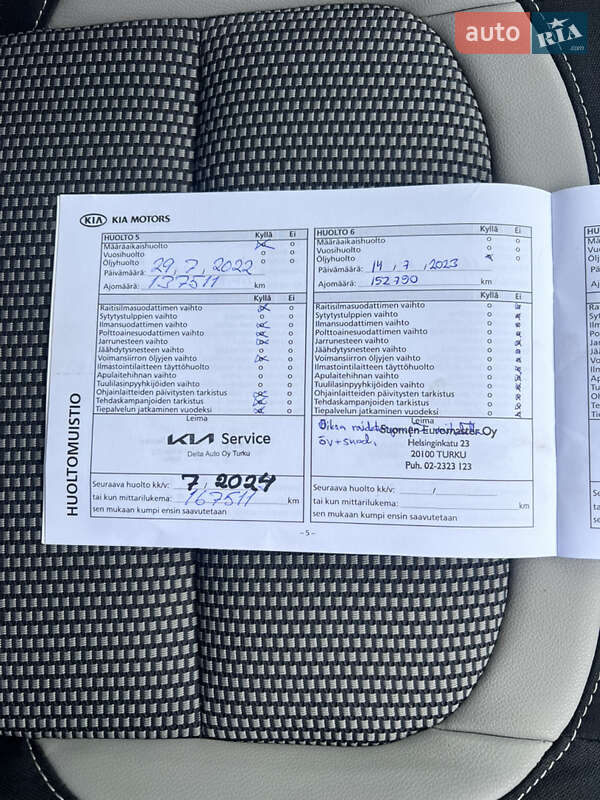 auto RIA.com
KIA KIA MOTORS
HUOLTOMUISTIO
HUOLTO 5 Kyllä Ei
Määräaikaishuolto o
Vuosihuolto o o
Öljyhuolto o o
Päivämäärä: 29, 7, 2022
Ajomäärä: 137511 km
Kyllä Ei
Raitisilmasuodattimen vaihto o
Sytytystulppien vaihto o o
Ilmansuodattimen vaihto o
Polttoainesuodattimen vaihto o
Jarrunesteen vaihto o
Jäähdytysnesteen vaihto o o
Voimansiirron öljyjen vaihto o
Ilmastointilaitteen täyttöhuolto o o
Apulaitehihnan vaihto o o
Tuulilasinpyyhkijöiden vaihto o o
Ohjainlaitteiden päivitysten tarkistus o
Tehdaskampanjoiden tarkistus o
Tiepalvelun jatkaminen vuodeksi o
Leima
KIA Service
Delta Auto Oy Turku
Seuraava huolto kk/v: 7 / 2024
tai kun mittarilukema: 167511 km
sen mukaan kumpi ensin saavutetaan
HUOLTO 6 Kyllä Ei
Määräaikaishuolto o o
Vuosihuolto o o
Öljyhuolto o
Päivämäärä: 14, 7, 2023
Ajomäärä: 152790 km
Kyllä Ei
Raitisilmasuodattimen vaihto o
Sytytystulppien vaihto o
Ilmansuodattimen vaihto o
Polttoainesuodattimen vaihto o
Jarrunesteen vaihto o
Jäähdytysnesteen vaihto o
Voimansiirron öljyjen vaihto o
Ilmastointilaitteen täyttöhuolto o
Apulaitehihnan vaihto o
Tuulilasinpyyhkijöiden vaihto o
Ohjainlaitteiden päivitysten tarkistus o
Tehdaskampanjoiden tarkistus o
Tiepalvelun jatkaminen vuodeksi o
Leima
Suomen Euromaster Oy
öv+suod.
Helsinginkatu 23
20100 TURKU
Puh. 02-2323 123
Seuraava huolto kk/v: /
tai kun mittarilukema: km
sen mukaan kumpi ensin saavutetaan
- 5 -